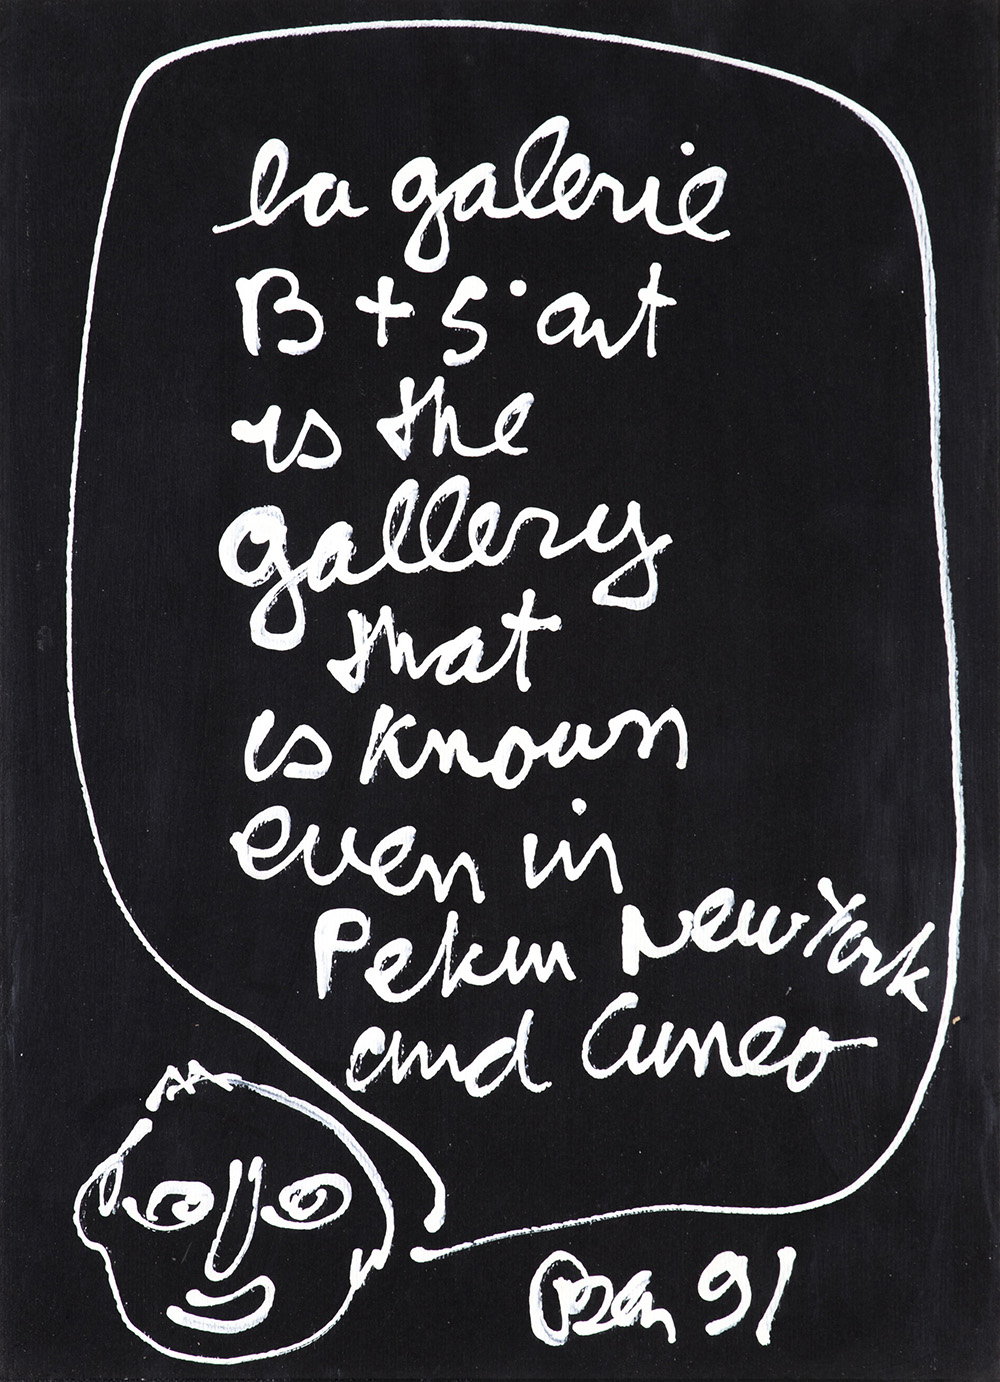 la galerie
B + S · art
is the
gallery
that
is known
even in
Pekin New York
and Cuneo
Ben 91